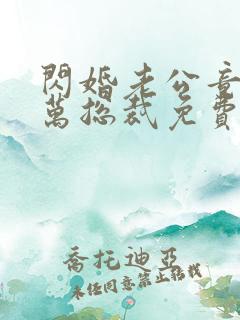 閃婚老公竟
萬總裁免費
喬托迪亞
未經同意禁止轉載